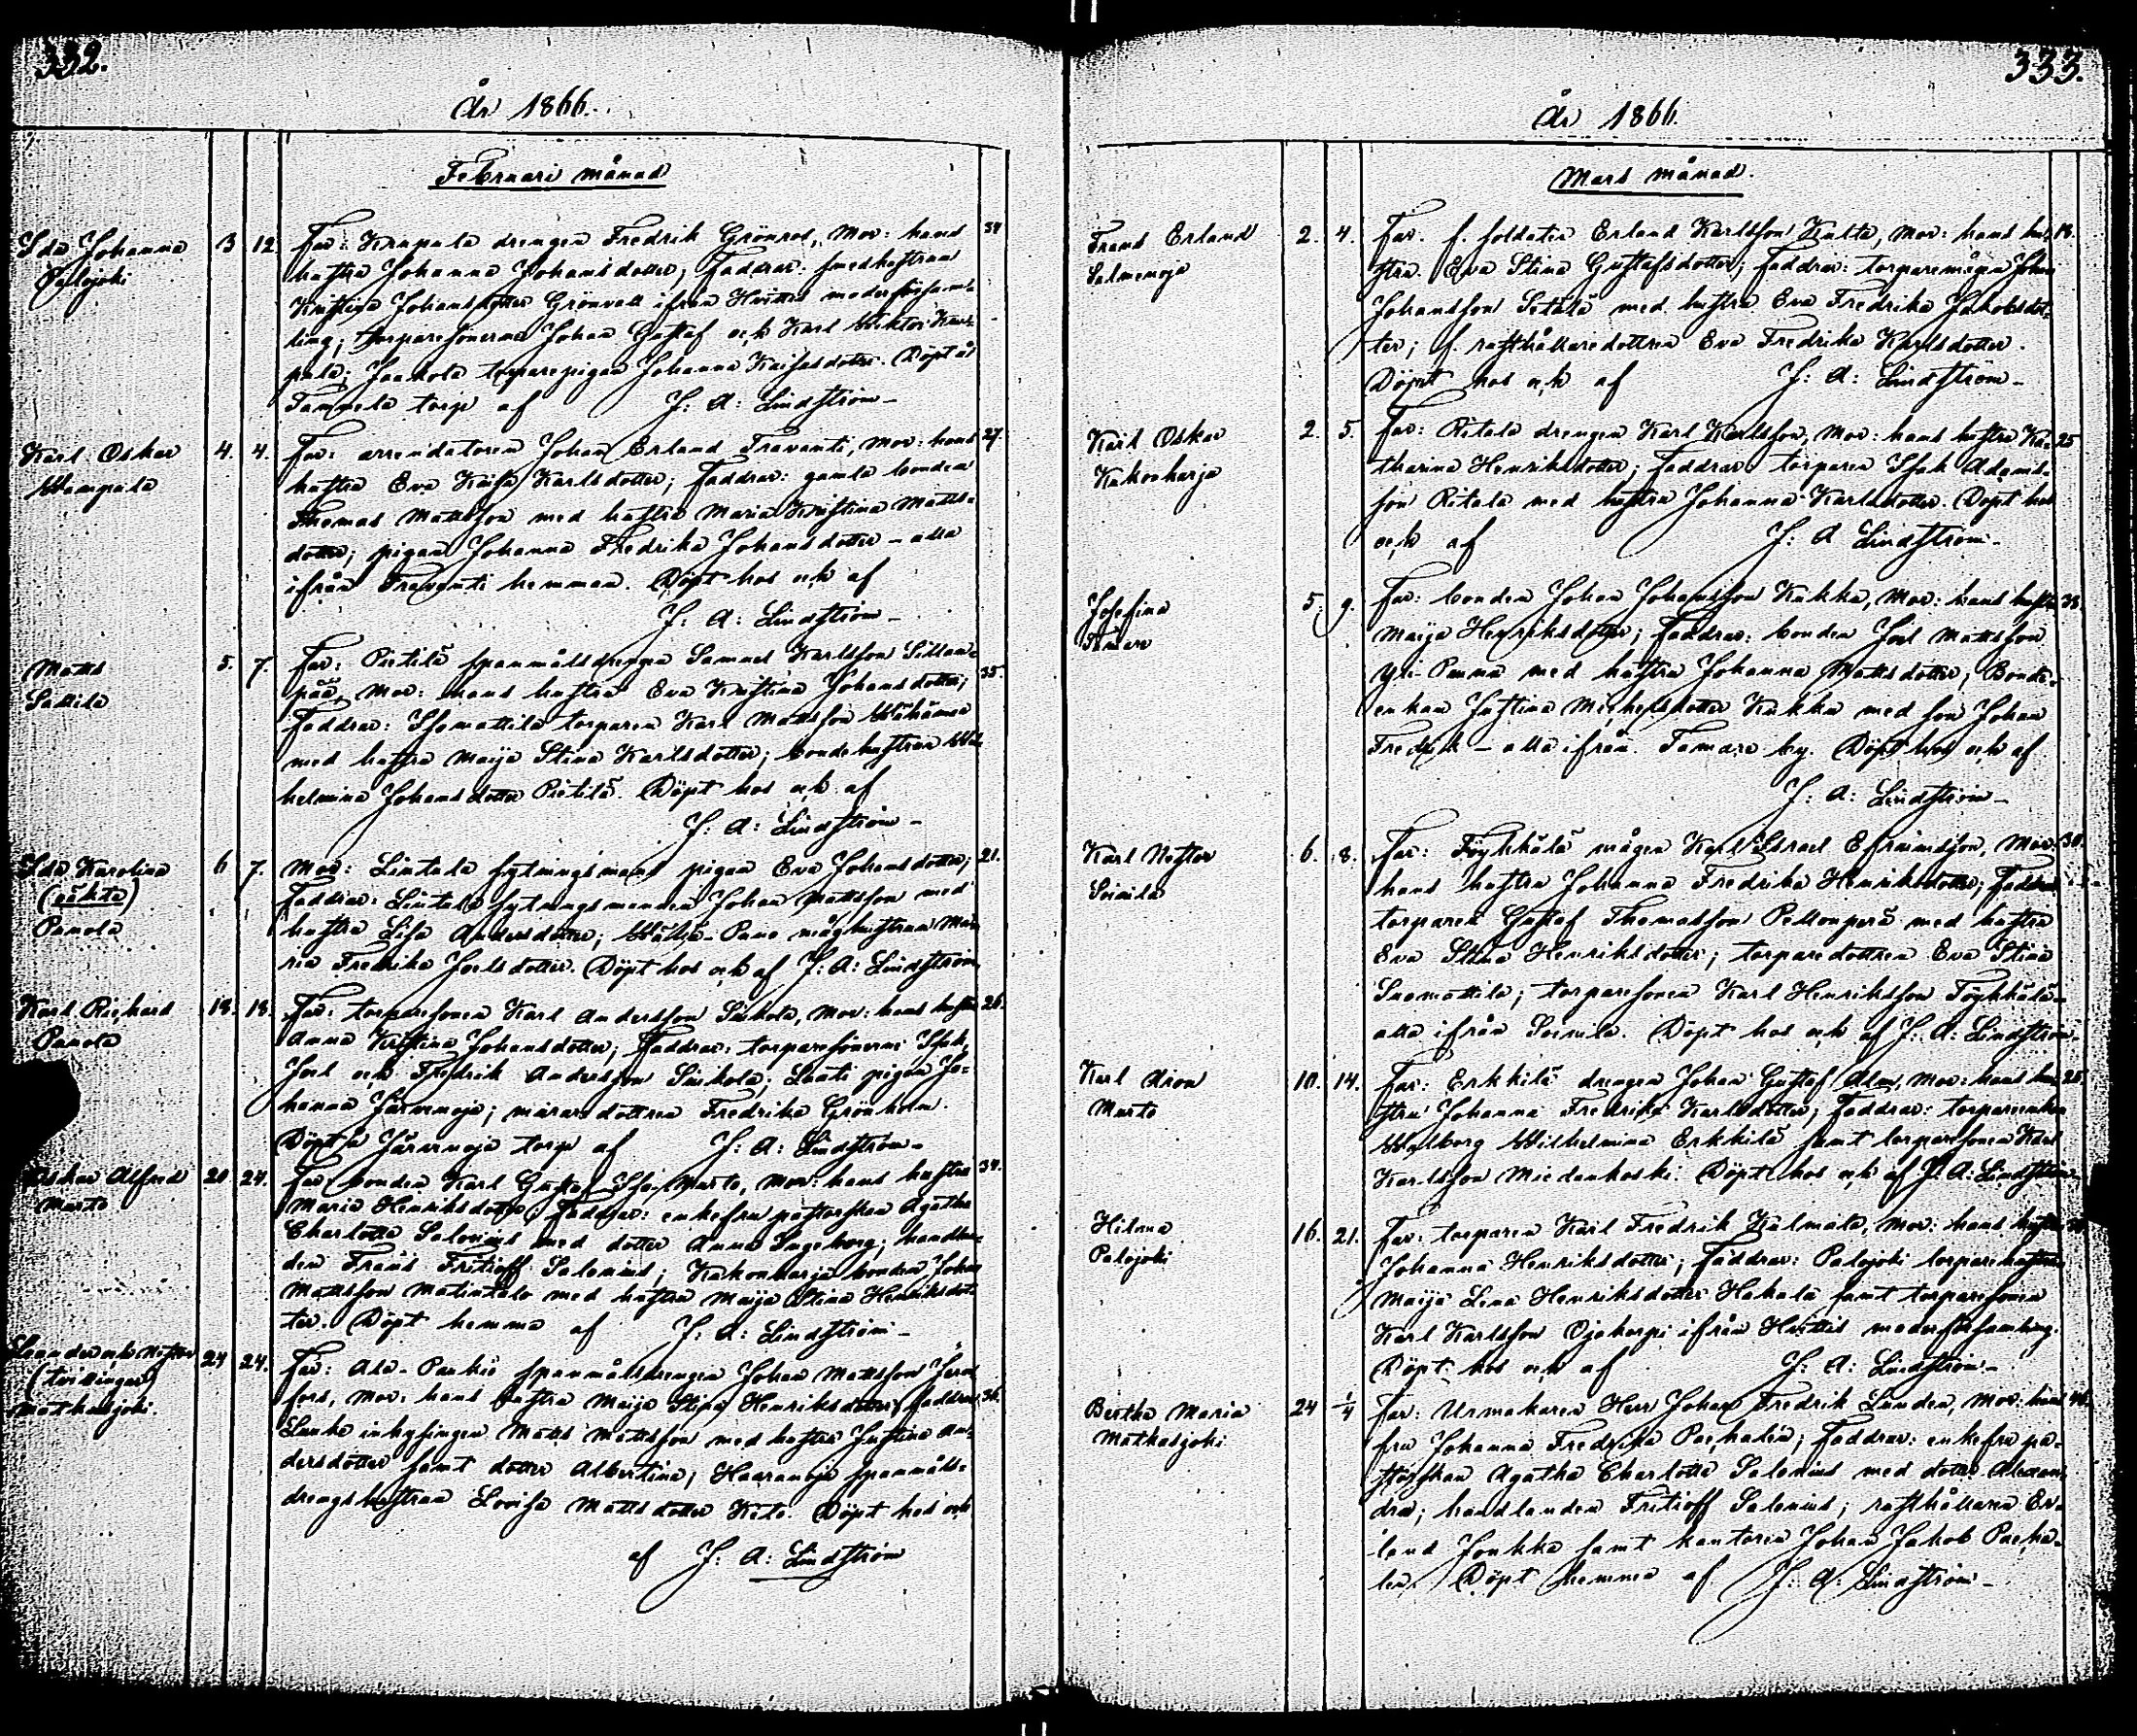 332.
År 1866.
Februari månad
Ida Johanna 3 12 Far: Krapula drengen Fredrik Grönros, Mor: hans 34
Palojoki hustru Johanna Johansdotter; Faddrar: smedhustrun
Johansdotter Grönvall ifrån Hvittis moderförsam-
ling; torparesönerna Johan Gustaf och Karl Viktor Kra-
pula; Jaakola torparepigan Johanna Kaisasdotter. Döpt å
Tammela torp af J: A: Lindström
Karl Oskar 4. 4. Far: arrendatoren Johan Erland Travanti, Mor: hans 27.
Wampula hustru Eva Kaisa Karlsdotter; Faddrar: gamla bonden
Thomas Mattsson med hustru Maria Kristina Matts-
dotter; pigan Johanna Fredrika Johansdotter – alla
ifrån Travanti hemman. Döpt hos och af
J: A: Lindström
Matts 5. 7. Far: Pietilä spanmålsdrengen Samuel Karlsson Sillan-
Sallila pää, Mor: hans hustru Eva Kristina Johansdotter; 35.
Faddrar: Isomattila torparen Karl Mattsson
med hustru Maija Stina Karlsdotter; bondehustrun Wil-
helmina Johansdotter Pietilä. Döpt hos och af
J: A: Lindström
Ida Karolina 6 7. Mor: Lintula sytningsmans pigan Eva Johansdotter; 21.
(oäkta) Faddrar: Lintula sytningsmannen Johan Mattsson med
Panola hustru Lisa Andersdotter; Wähä-Pano måghustrun Ma-
ria Fredrika Joelsdotter. Döpt hos och af J: A: Lindström
Karl Richard 18. 18. Far: torparesonen Karl Andersson Siukola, Mor: hans hustru 26.
Panola Anna Kristina Johansdotter; Faddrar: torparesönerne Isak,
Joel och Fredrik Andersson Siukola; Lauti pigan Jo-
hanna Järvenoja; muraredottren Fredrika Grönholm.
Döpt å Järvenoja torp af J: A: Lindström
Oskar Alfred 20 24. Far: bonden Karl Gustaf Iso-Murto, Mor: hans hustru 34.
Murto Maria Henriksdotter; Faddrar: enkefru pastorskan Agatha
Charlotta Salenius med dotter Anna Ingeborg; handlan-
den Frans Fritioff Salenius; Kukonharja bonden Johan
Mattsson Matintalo med hustru Maija Stina Henriksdot-
ter. Döpt hemma af J: A: Lindström
och Nestor 24 24. Far: Ala-Paukio spanmålsdrengen Johan Mattsson
(tvillingar) fors, Mor: hans hustru Maija Stina Henriksdotter; Faddrar: 36.
Matkusjoki. inhysingen Matts Mattsson med hustru Justina An-
dersdotter samt dotter Albertina; Haaranoja spanmåls-
drengshustrun Lovisa Mattsdotter Döpt hos och
af J: A: Lindström
333.
År 1866.
Mars månad.
Frans Erland 2. 4. Far: f. soldaten Erland Karlsson Kulta, Mor: hans hu- 18.
Salmenoja stru Eva Stina Gustafsdotter; Faddrar: torparemågen Johan
Johansson Setälä med hustru Eva Fredrika Jakobsdot-
ter; f. rusthållaredottren Eva Fredrika Karlsdotter.
Döpt hos och af J: A: Lindström
Karl Oskar 2. 5. Far: Ritala drengen Karl Karlsson, Mor: hans hustru Ka- 25
Kukonharja tharina Henriksdotter; Faddrar: torparen Isak Adams-
son Ritala med hustru Johanna Karlsdotter. Döpt hos
och af J: A Lindström
Josefina 5. 9. Far: bonden Johan Johansson Kukka, Mor: hans hustru 38
Tamare Maija Henriksdotter; Faddrar: bonden Joel Mattsson
Yli-Panna med hustru Johanna Mattsdotter; Bonde-
enkan Justina Michelsdotter Kukka med son Johan
Fredrik – alla ifrån Tamare by. Döpt hos och af
J: A: Lindström
Karl Nestor 6. 8. Far: Töykkälä mågen Karl Israel Efraimsson, Mor: 30.
Soinila hans hustru Johanna Fredrika Henriksdotter; Faddrar:
torparen Gustaf Thomasson Peltonperä med hustru
Eva Stina Henriksdotter; torparedottren Eva Stina
Suomattila; torparesonen Karl Henriksson Töykkälä –
alla ifrån Soinila. Döpt hos och af J: A: Lindström
Karl Aron 10. 14. Far: Erkkilä drengen Johan Gustaf Alm, Mor: hans hu- 25.
Murto stru Johanna Fredrika Karlsdotter; Faddrar: torpareenkan
Walborg Wilhelmina Erkkilä samt torparesonen Karl
Karlsson Miedankoski. Döpt hos och af J: A: Lindström
Hilma 16. 21. Far: torparen Karl Fredrik Kulmala, Mor: hans hustru
Palojoki Johanna Henriksdotter; Faddrar: Palojoki torparehustrun
Maija Lena Henriksdotter Hakala samt torparesonen
Karl Karlsson Ojakorpi ifrån Hvittis moderförsamling.
Döpt hos och af J: A: Lindström
Bertha Maria 24 1/4 Far: Urmakaren Herr Johan Fredrik Lunden, Mor: hans
Matkusjoki fru Johanna Fredrika Pachalen; Faddrar: enkefru pa-
storskan Agatha Charlotta Salenius med dotter Alexan-
dra; handlanden Fritioff Salenius; rusthållaren Er-
land Jonkka samt kantoren Johan Jakob Pacha-
len. Döpt hemma af J: A: Lindström